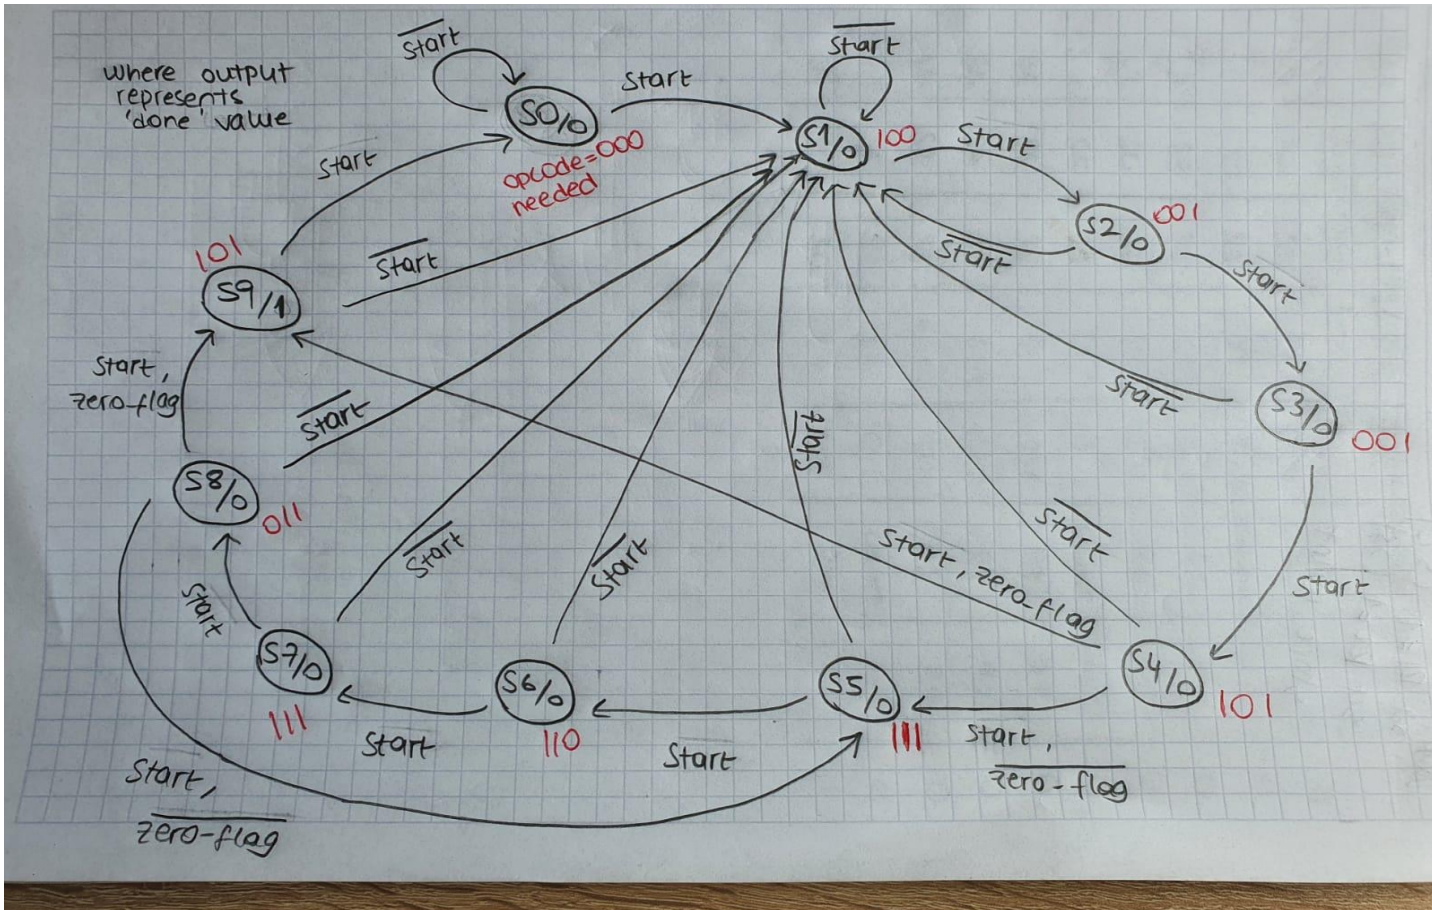 where output
represents
'done' value
Start
S0/0
opcode=000
needed
Start
Start
S1/0
100
Start
S2/0
001
Start
Start
S3/0
001
Start
Start
S4/0
101
Start
Start, zero_flag
Start,
zero-flag
S5/0
111
Start
Start
S6/0
110
Start
Start
S7/0
111
Start
Start
S8/0
011
Start
Start,
zero-flag
Start,
zero_flag
S9/1
101
Start
Start